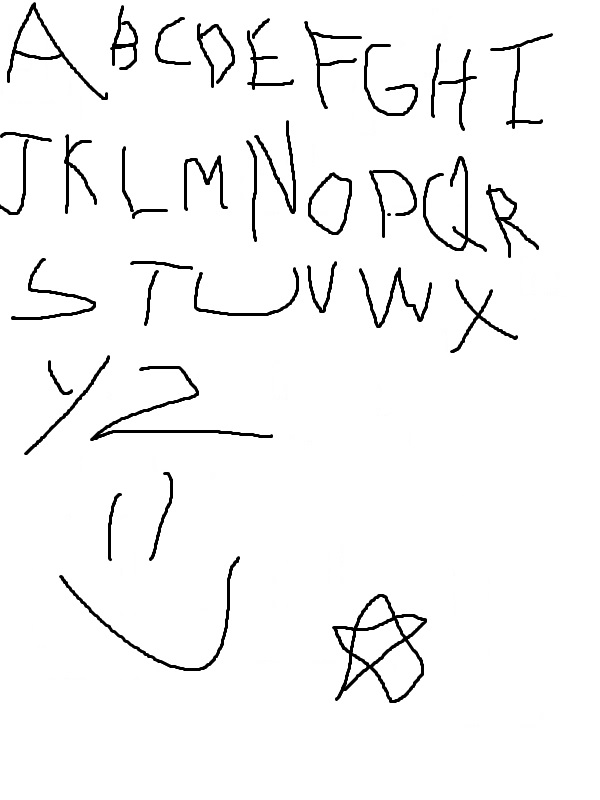 ABCDEFGHI
JKLMNOPQR
STUVWX
YZ